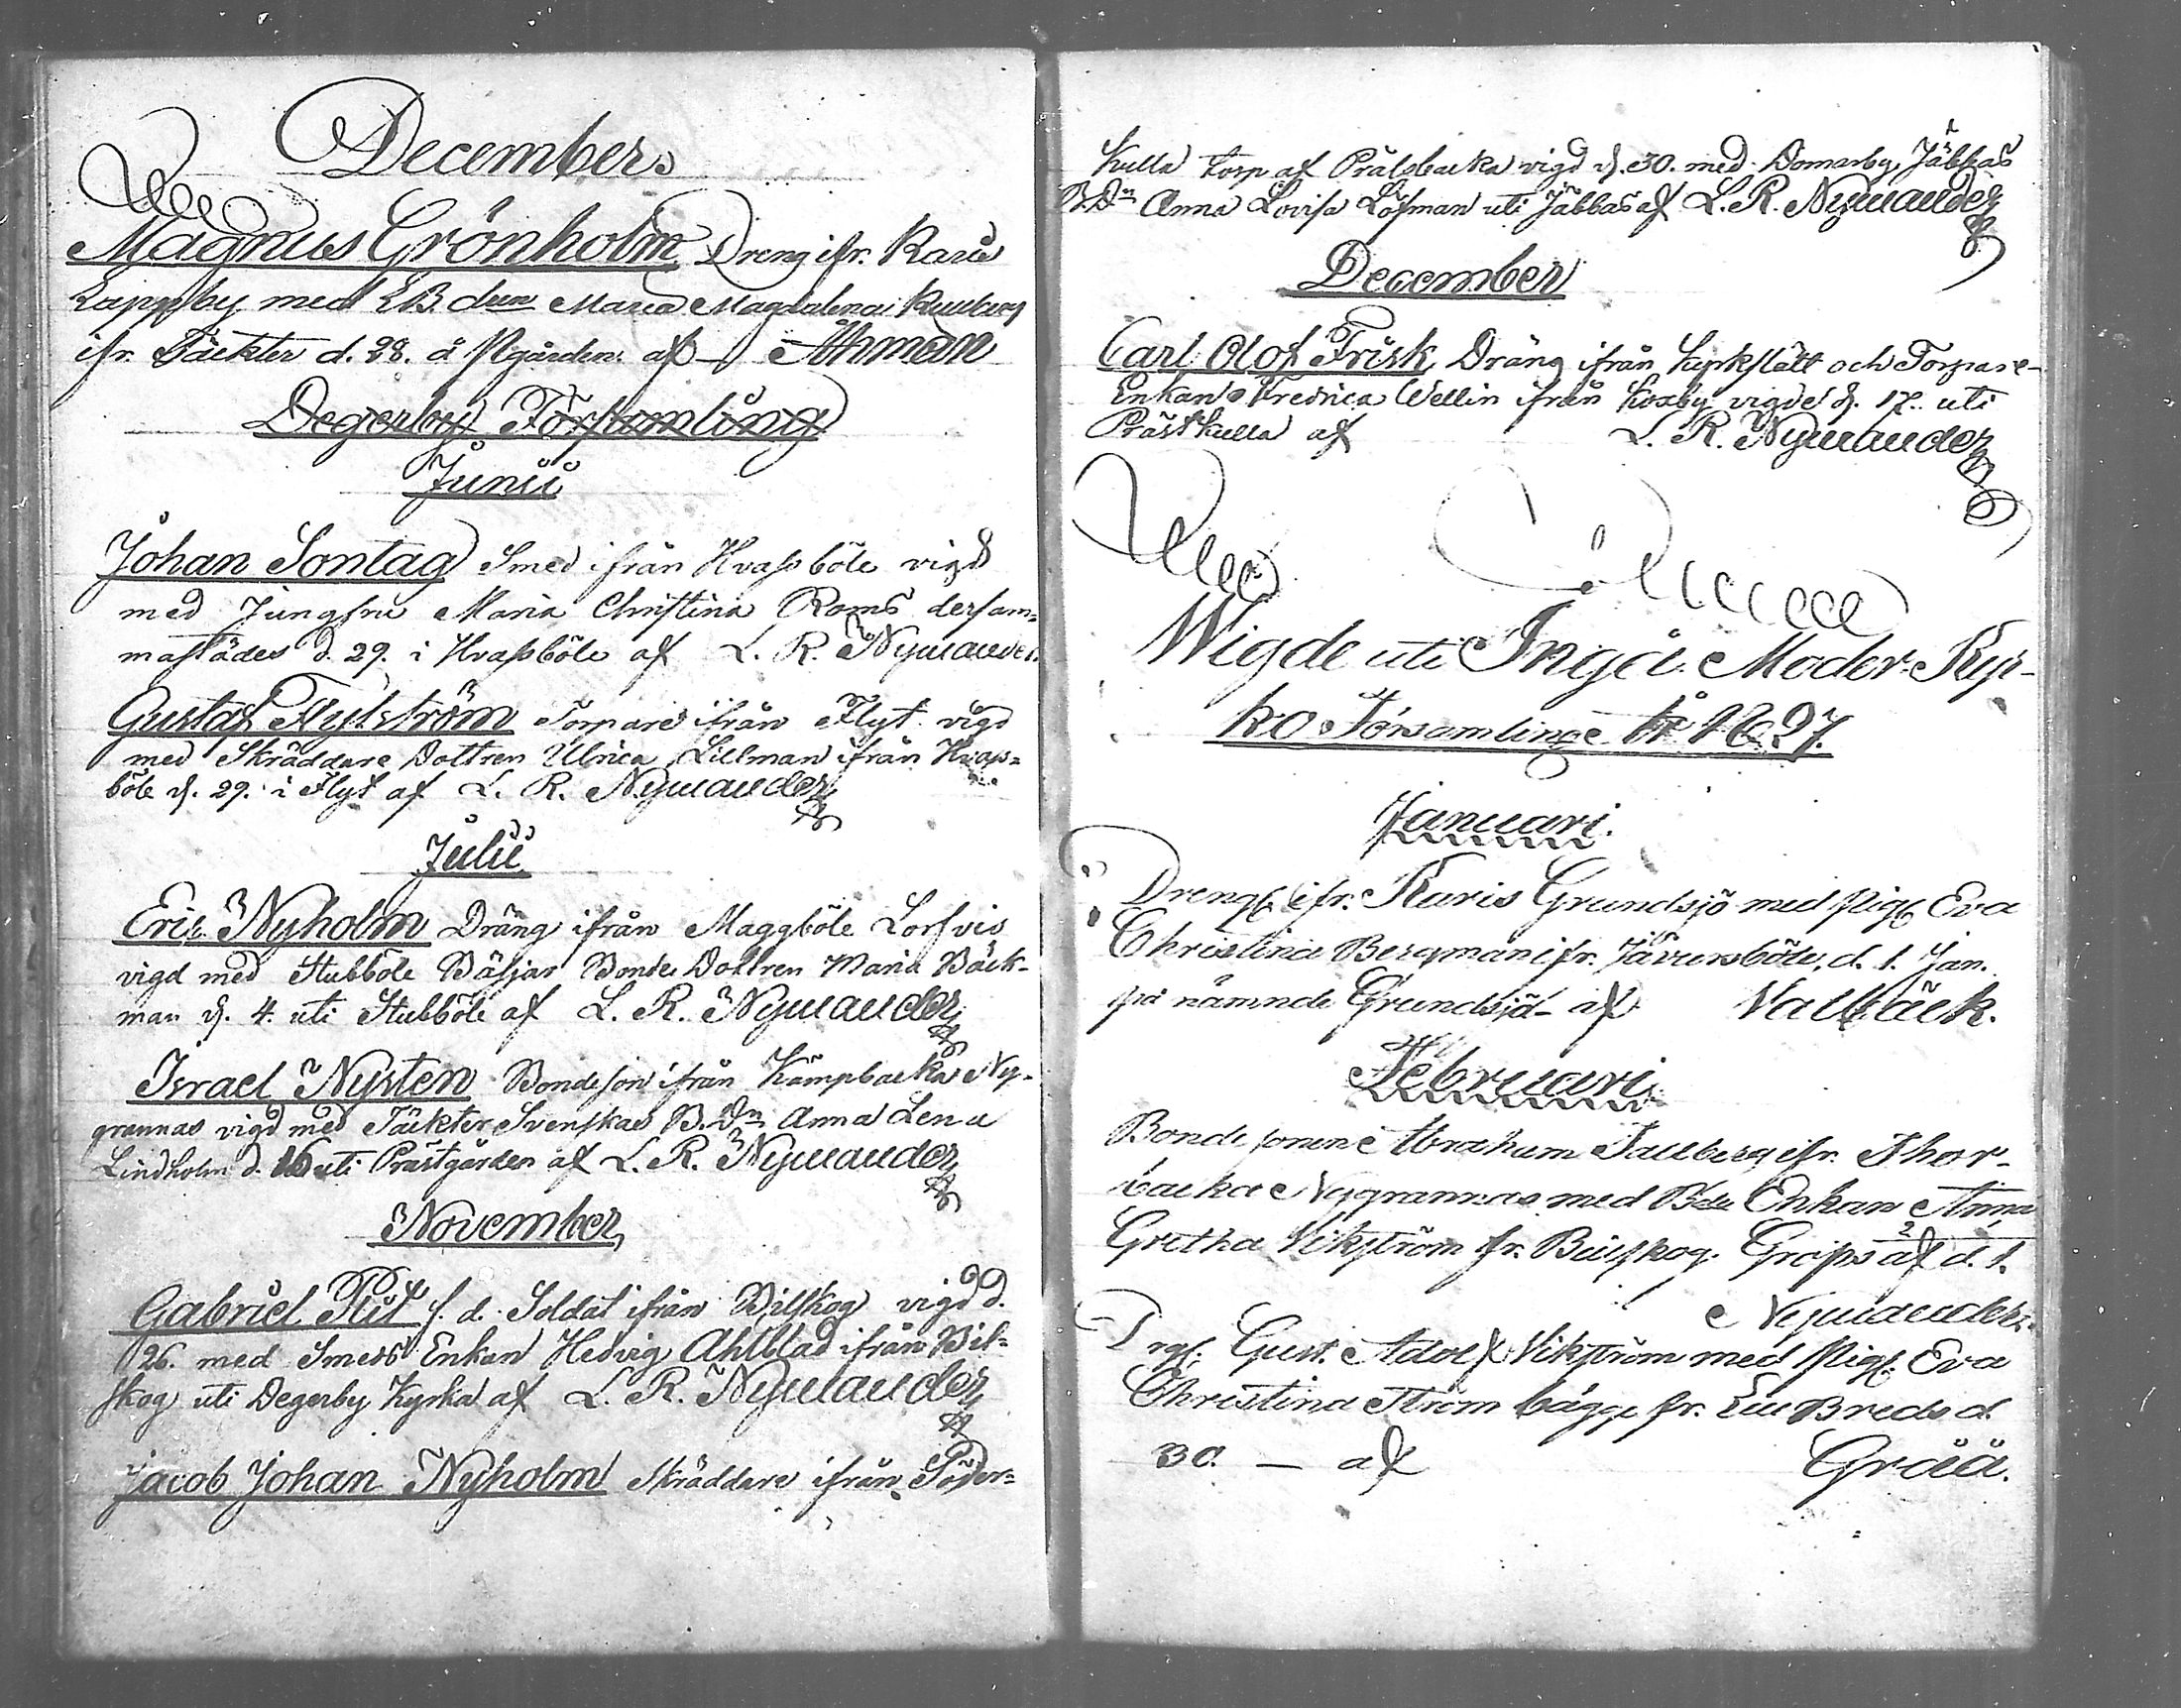 December
Magnus Grönholm Dreng ifr. Karis
Lappby med EB dren Maria Magdalena
ifr. Täckter d. 28. å Pgården af Åhman
Degerby Församling
Junii
Johan Sontag Smed ifrån Hvassböle vigd
med Jungfru Maria Christina Roms dersam-
mastädes d. 29. i Hvassböle af L. R. Nymander
Gustaf Flytström Torpare ifrån Flyt vigd
med Skräddare Dottren Ulrica Lillman ifrån Hvass-
böle d. 29. i Flyt af L. R. Nymander
Julii
Eric Nyholm Dräng ifrån Maggböle Lorfvis
vigd med Stubböle Bäsjar Bonde Dottren Maria Bäck-
man d. 4. uti Stubböle af L. R. Nymander
Israel Nysten Bondeson ifrån Kämpbacka Ny-
grannas vigd med Täckter Svenskas B. Dn Anna Lena
Lindholm d. 16 uti Prästgården af L. R. Nymander
November
Gabriel Flit f. d. Soldat ifrån Bilskog vigd d.
26. med Smeds Enkan Hedvig Ahlblad ifrån Bil-
skog uti Degerby Kyrka af L. R. Nymander
Jacob Johan Nyholm Skräddare ifrån Söder-
kulla torp af vigd d. 30. med Domarby Jäbbas
B. Dn Anna Lovisa Löfman uti Jäbbas af L. R. Nymander
December
Carl Olof Frisk Dräng ifrån Kyrkslätt och Torpare-
Enkan Fredrica Wellin ifrån vigde d. 17. uti
Prästkulla af L. R. Nymander
Wigde uti Ingå Moder-Kyr-
ko Församling år 1827.
Januari.
Drengf. ifr. Karis Grundsjö med Pigf. Eva
Christina Bergman ifr. d. 1. Jan.
på nämnde Grundsjö af Vallbäck.
Februari
Bonde sonen Abraham ifr. Thor-
backa Nygrannas med Bde Enkan Anna
Gretha Vikström fr. Bilskog Grips af d. 1.
Nymander
Drgf. Gust. Adolf Vikström med Pigf. Eva
Christina Ström bägge fr. Breds d.
30. — af Gråå.